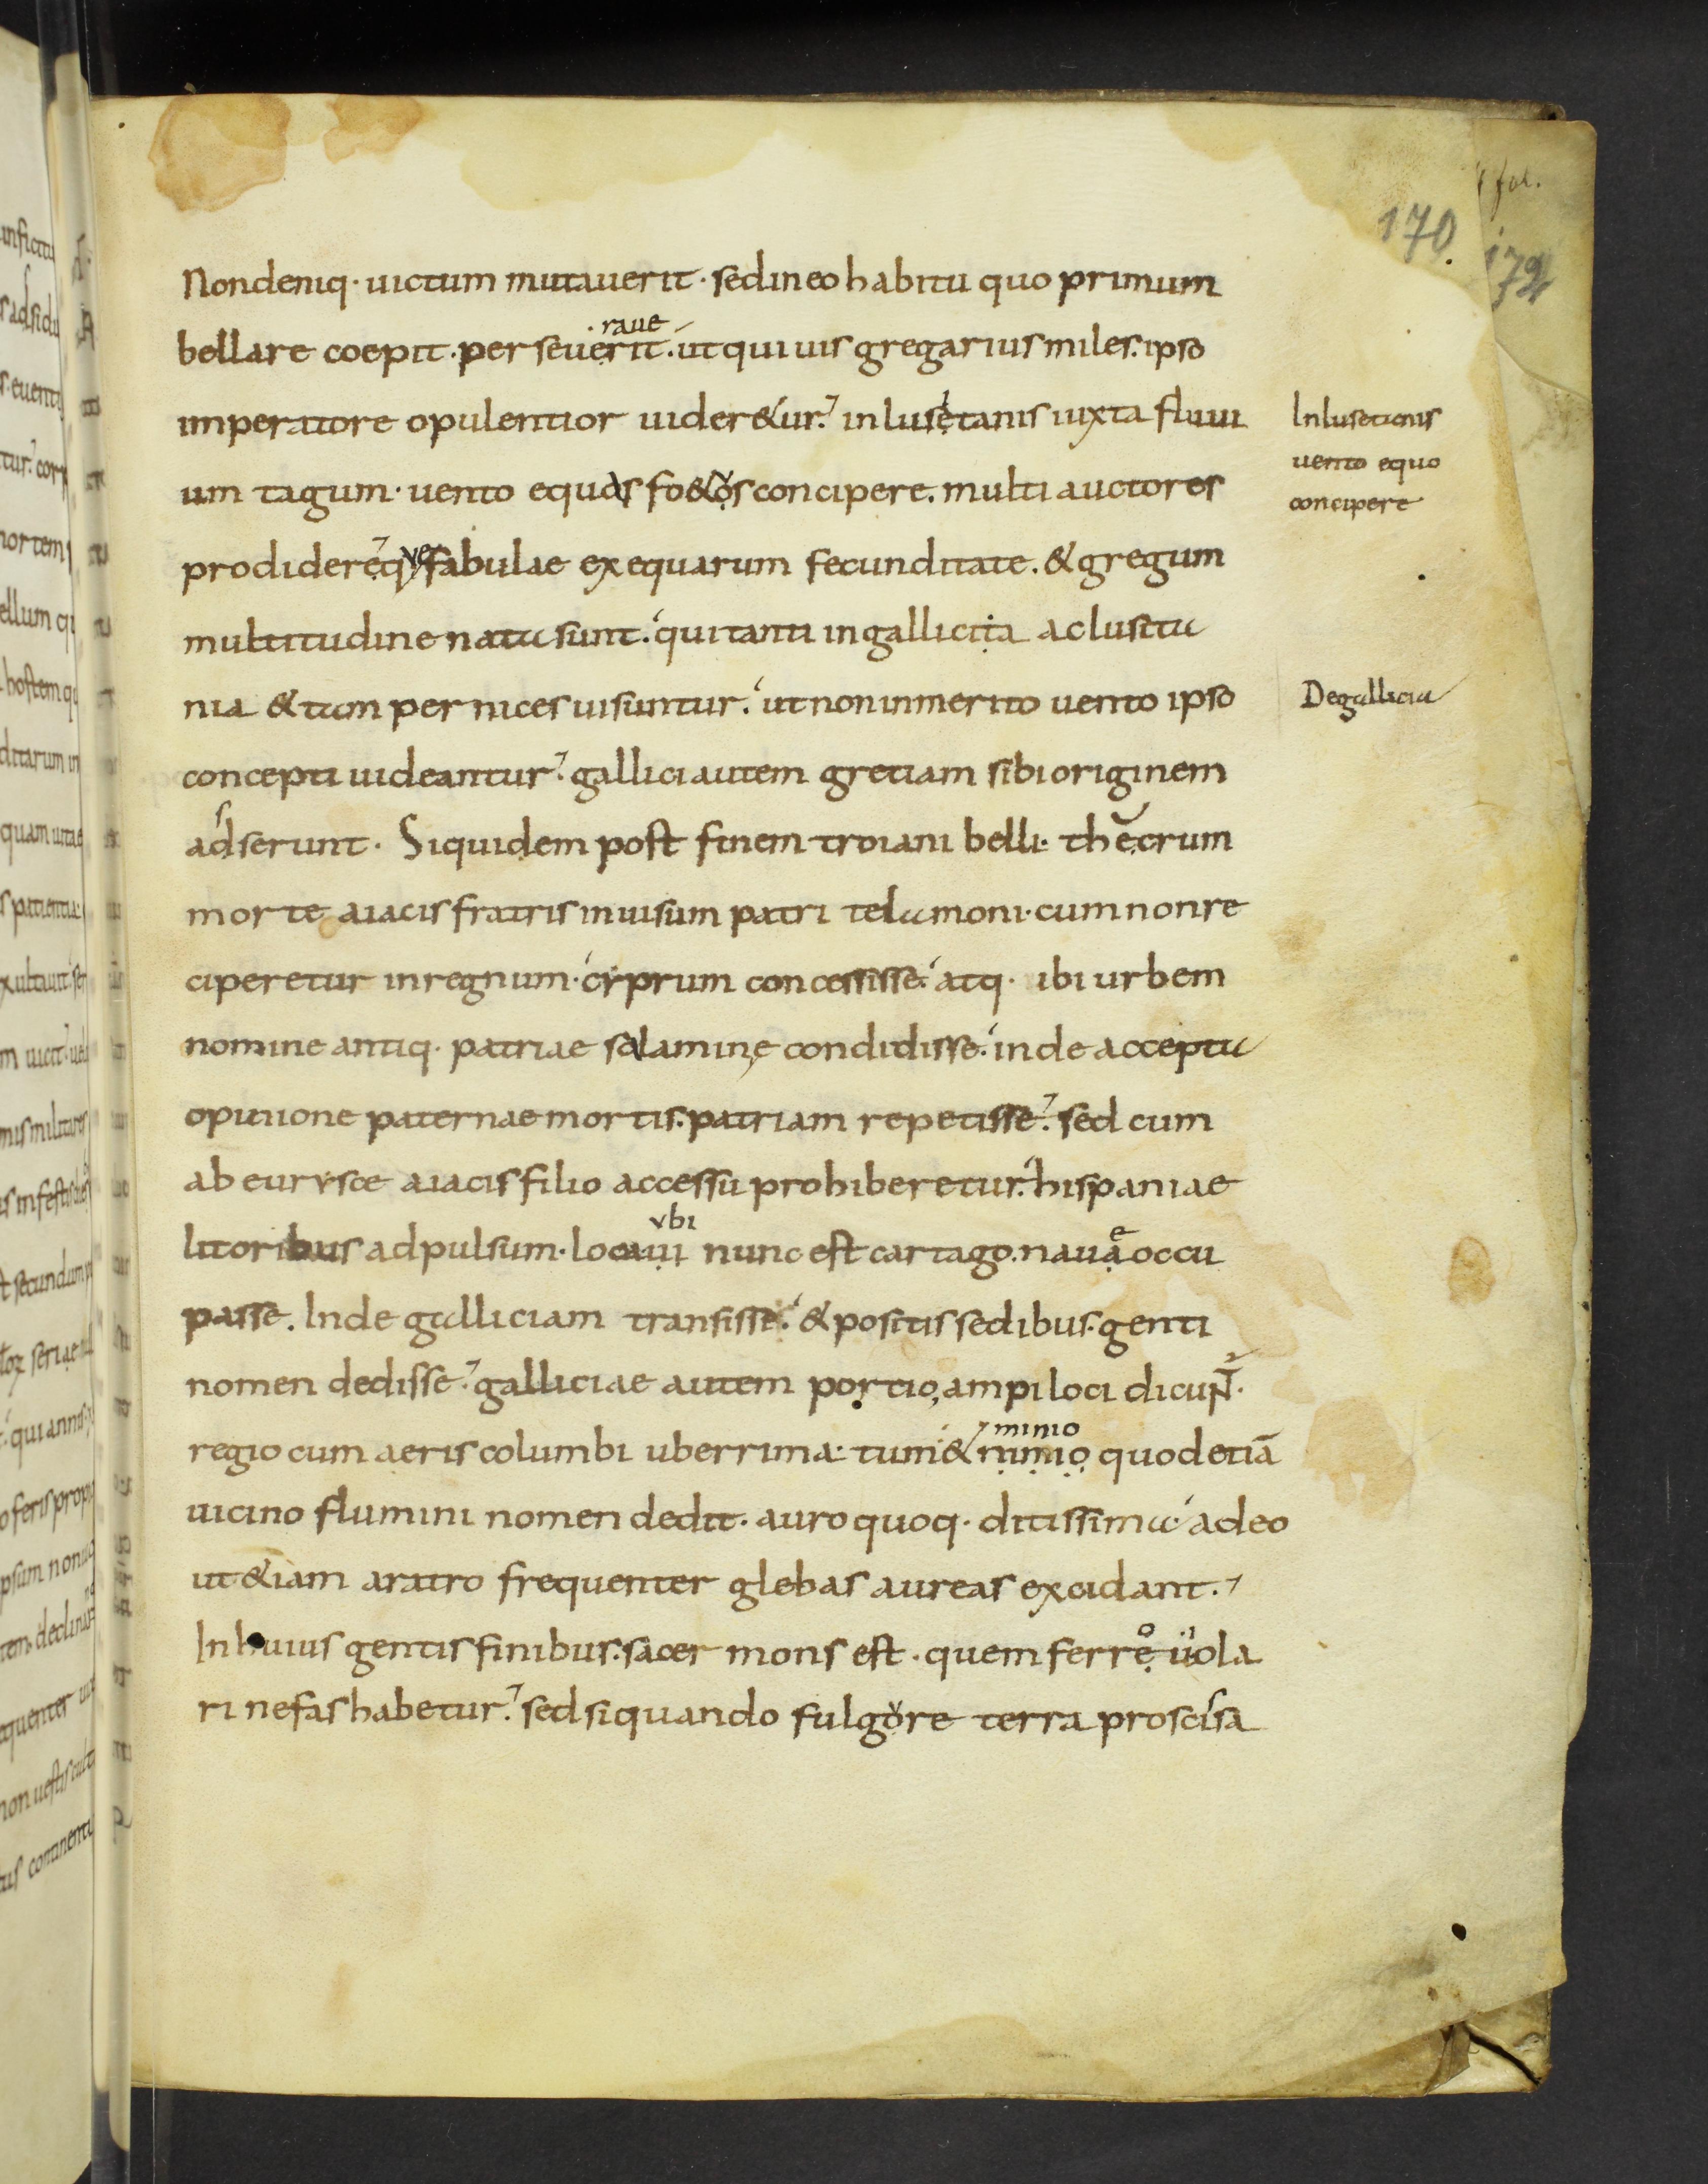 fol.
170.
172
Non deniq· uictum mutauerit · sed in eo habitu quo primum
·raue
bellare coepit· perseuerit· ut qui uis gregarius miles· ipso
imperatore opulentior uider&ur· in lusetanis iuxta fluui
um tagum· uento equas fo&os concipere· multi auctores
prodidere que fabulae ex equarum fecunditate· & gregum
multitudine natae sunt· qui tanti in galliciia ac lusita
nia & tam pernices uisuntur· ut non inmerito uento ipso
concepti uideantur· gallici autem gretiam sibi originem
adserunt· Siquidem post finem troiani belli· thecrum
morte aiacis fratris inuisum patri telamoni· cum non re
ciperetur in regnum· cyprum concessisse· atq· ibi urbem
nomine antiq· patriae salamine condidisse· inde accepta
opinione paternae mortis· patriam repetisse· sed cum
ab eurysce aiacis filio accessu prohiberetur· hispaniae
vbi e
litoribus adpulsum· loca ui nunc est cartago· naua occu
passe· Inde galliciam transisse· & positis sedibus· genti
nomen dedisse· galliciae autem portio, ampiloci dicunt·
minio
regio cum aeris columbi uberrima· tum & nimio quod etiā
uicino flumini nomen dedit· auro quoq· ditissima· adeo
ut &iam aratro frequenter glebas aureas excidant·
In huius gentis finibus· sacer mons est · quem ferre uiola
ri nefas habetur· sed si quando fulgore terra proscisa
In lusetanis
uento equo
concipere
De gallicia